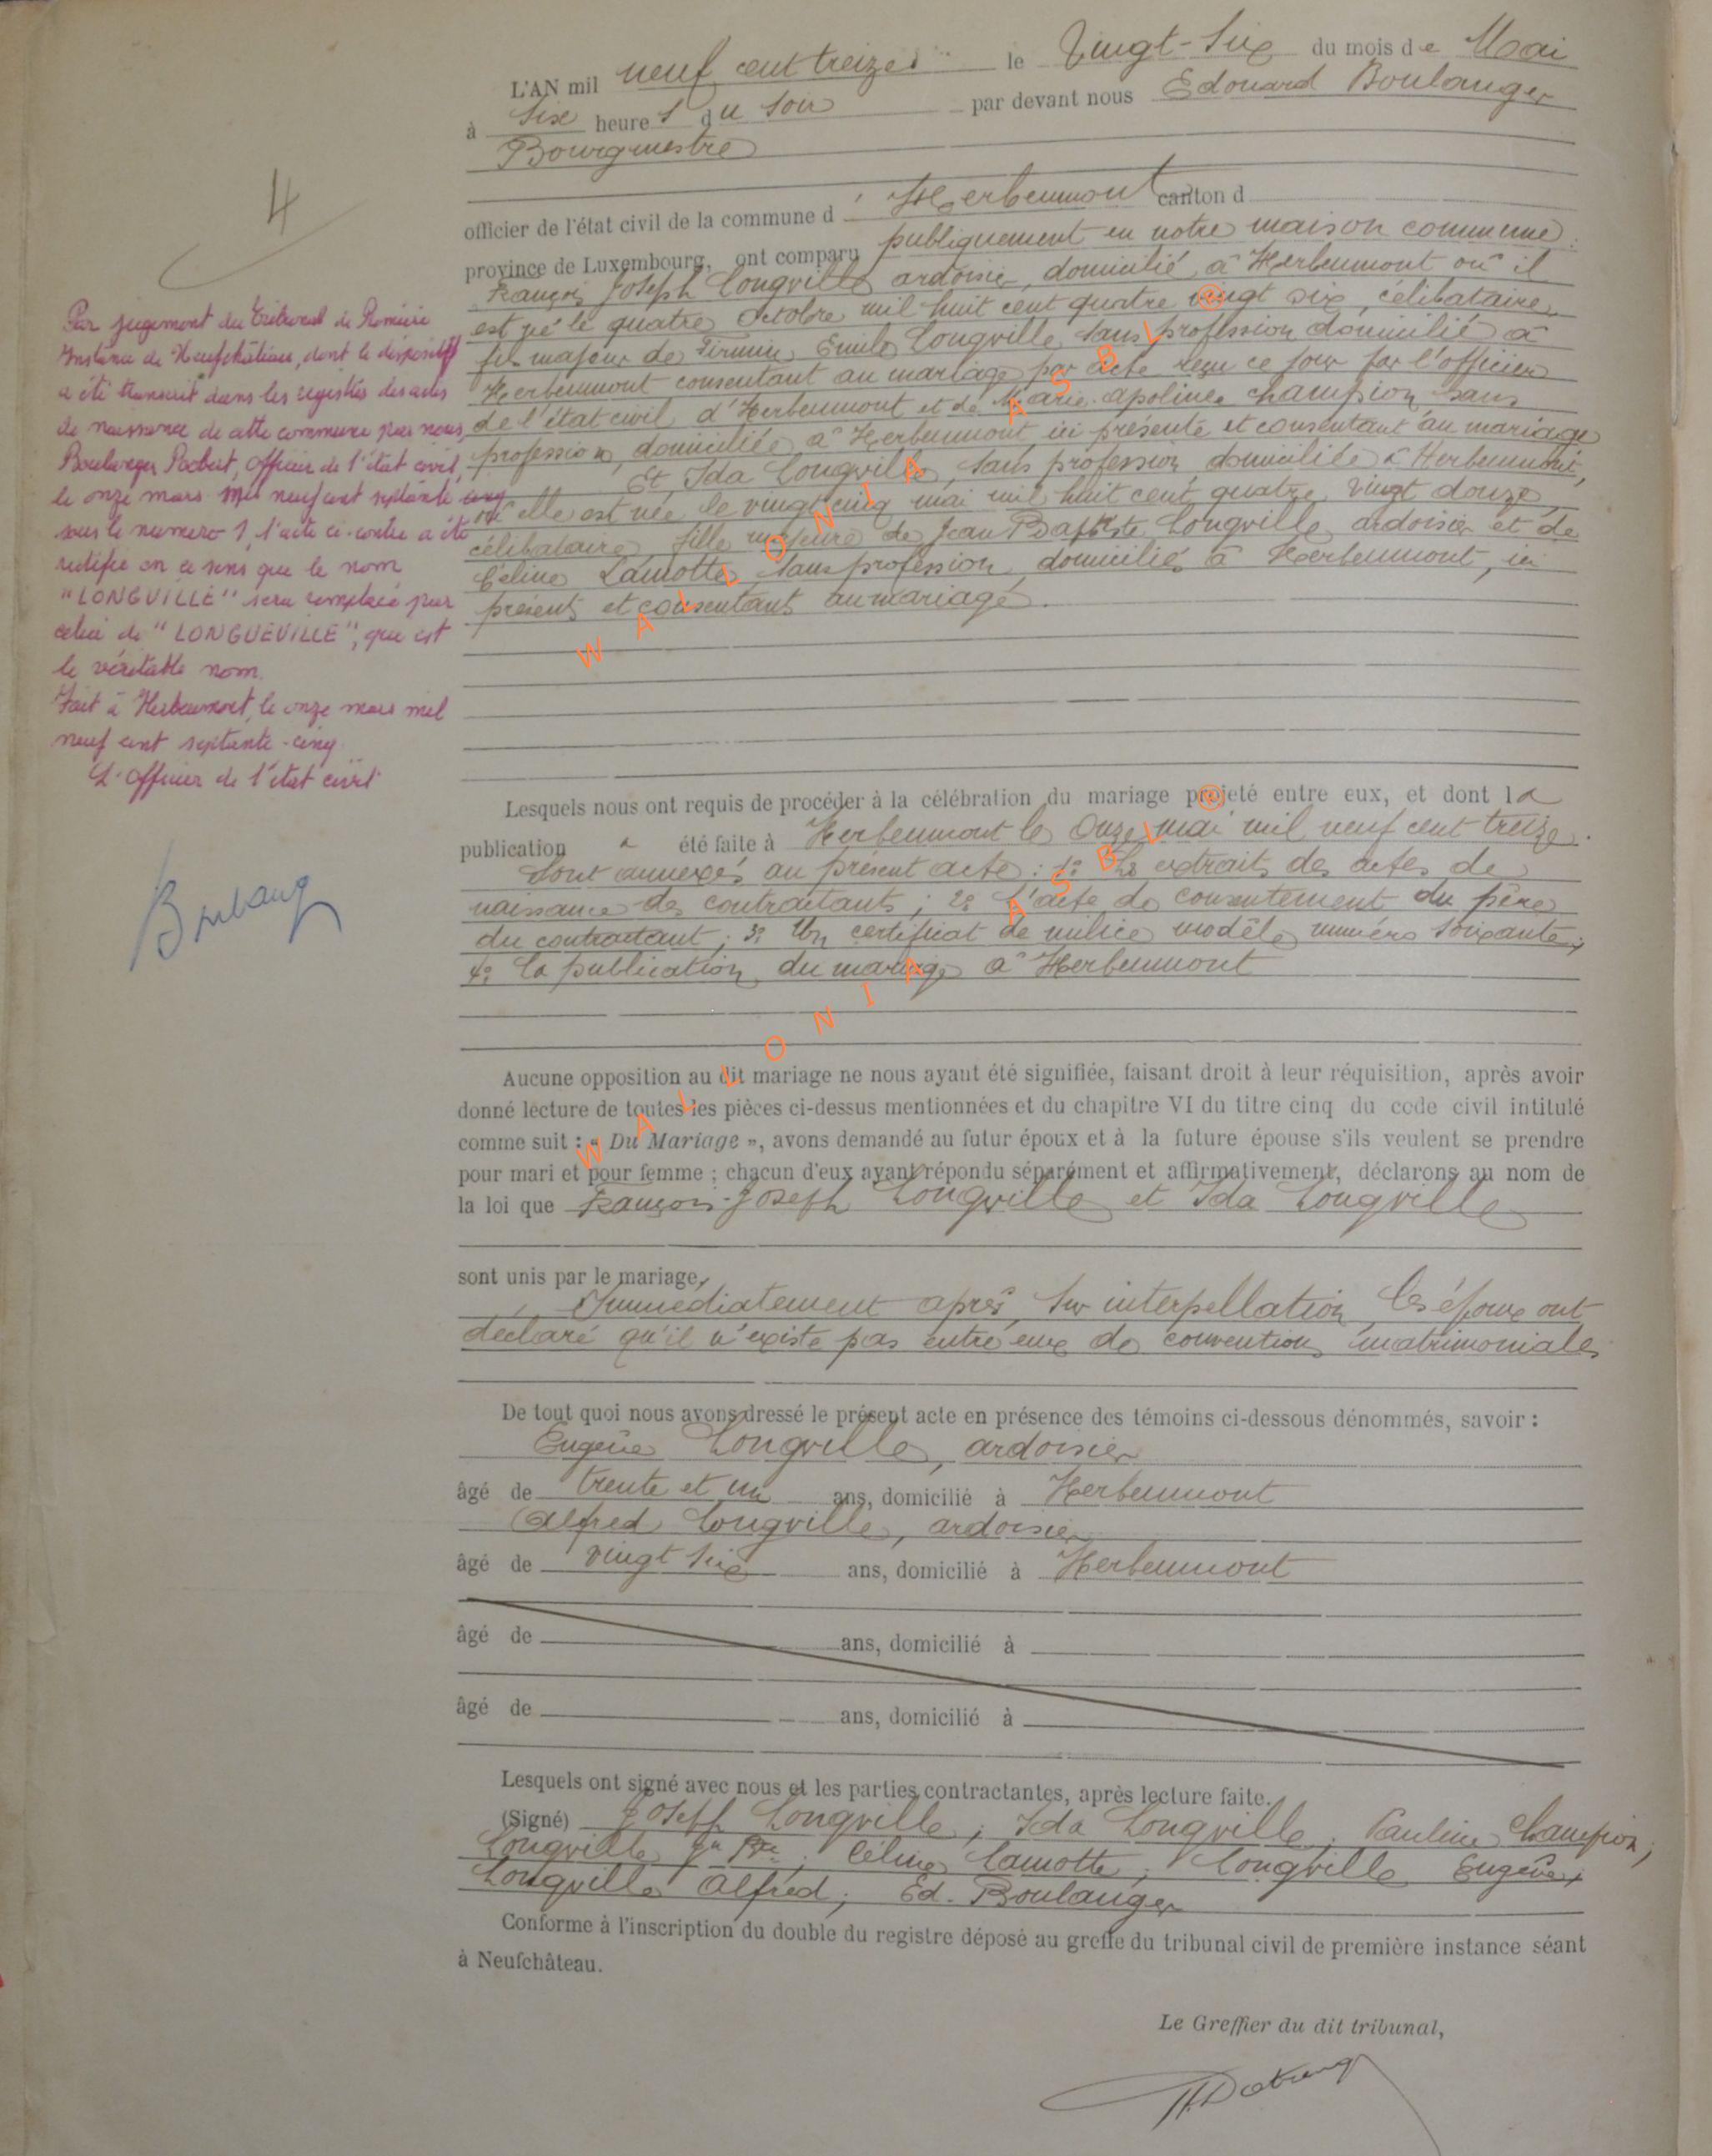 L'AN mil neuf cent treize le Vingt-Six du mois de Mai
à Six heures du soir par devant nous Edouard Boulanger
Bourgmestre
officier de l'état civil de la commune d' Herbeumont canton d
province de Luxembourg, ont comparu publiquement en notre maison commune :
François Joseph Longville ardoisier, domicilié à Herbeumont où il
est né le quatre Octobre mil huit cent quatre vingt six, célibataire,
fils majeur de Firmin Emile Longville, sans profession domicilié à
Herbeumont consentant au mariage par acte reçu ce jour par l'officier
de l'état civil d'Herbeumont et de Marie apoline Champion sans
profession, domiciliée à Herbeumont ici présente et consentant au mariage
Et Ida Longville, sans profession domiciliée à Herbeumont,
où elle est née le vingt cinq mai mil huit cent quatre vingt douze,
célibataire, fille mineure de Jean Baptiste Longville ardoisier et de
Céline Lamotte, sans profession, domiciliés à Herbeumont, ici
présents et consentants au mariage.
4
Par jugement du Tribunal de Première
Instance de Neufchâteau, dont le dispositif
a été transcrit dans les registres des actes
de naissance de cette commune par nous,
Boulanger Robert, Officier de l'état civil,
le onze mars mil neuf cent septante cinq
sous le numéro 1, l'acte ci-contre a été
rectifié en ce sens que le nom
"LONGVILLE" sera remplacé par
celui de "LONGUEVILLE", qui est
le véritable nom.
Fait à Herbeumont, le onze mars mil
neuf cent septante-cinq.
L'officier de l'état civil
Boulang
Lesquels nous ont requis de procéder à la célébration du mariage projeté entre eux, et dont la
publication a été faite à Herbeumont le Onze mai mil neuf cent treize.
Sont annexés au présent acte : 1° Les extraits des actes de
naissance des contractants ; 2° L'acte de consentement du père
du contractant ; 3° Un certificat de milice modèle numéro soixante ;
4° La publication du mariage à Herbeumont
Aucune opposition au dit mariage ne nous ayant été signifiée, faisant droit à leur réquisition, après avoir
donné lecture de toutes les pièces ci-dessus mentionnées et du chapitre VI du titre cinq du code civil intitulé
comme suit : « Du Mariage », avons demandé au futur époux et à la future épouse s'ils veulent se prendre
pour mari et pour femme ; chacun d'eux ayant répondu séparément et affirmativement, déclarons au nom de
la loi que François-Joseph Longville et Ida Longville
sont unis par le mariage,
Immédiatement après, sur interpellation, les époux ont
déclaré qu'il n'existe pas entre eux de conventions matrimoniales
De tout quoi nous avons dressé le présent acte en présence des témoins ci-dessous dénommés, savoir :
Eugène Longville, ardoisier
âgé de trente et un ans, domicilié à Herbeumont
Alfred Longville, ardoisier
âgé de vingt six ans, domicilié à Herbeumont
âgé de ans, domicilié à
âgé de ans, domicilié à
Lesquels ont signé avec nous et les parties contractantes, après lecture faite.
(Signé) Joseph Longville ; Ida Longville ; Pauline Champion ;
Longville Jn Bte ; Céline Lamotte ; Longville Eugène ;
Longville Alfred ; Ed. Boulanger
Conforme à l'inscription du double du registre déposé au greffe du tribunal civil de première instance séant
à Neufchâteau.
Le Greffier du dit tribunal,
WALLONIA ASBL ®
WALLONIA ASBL ®